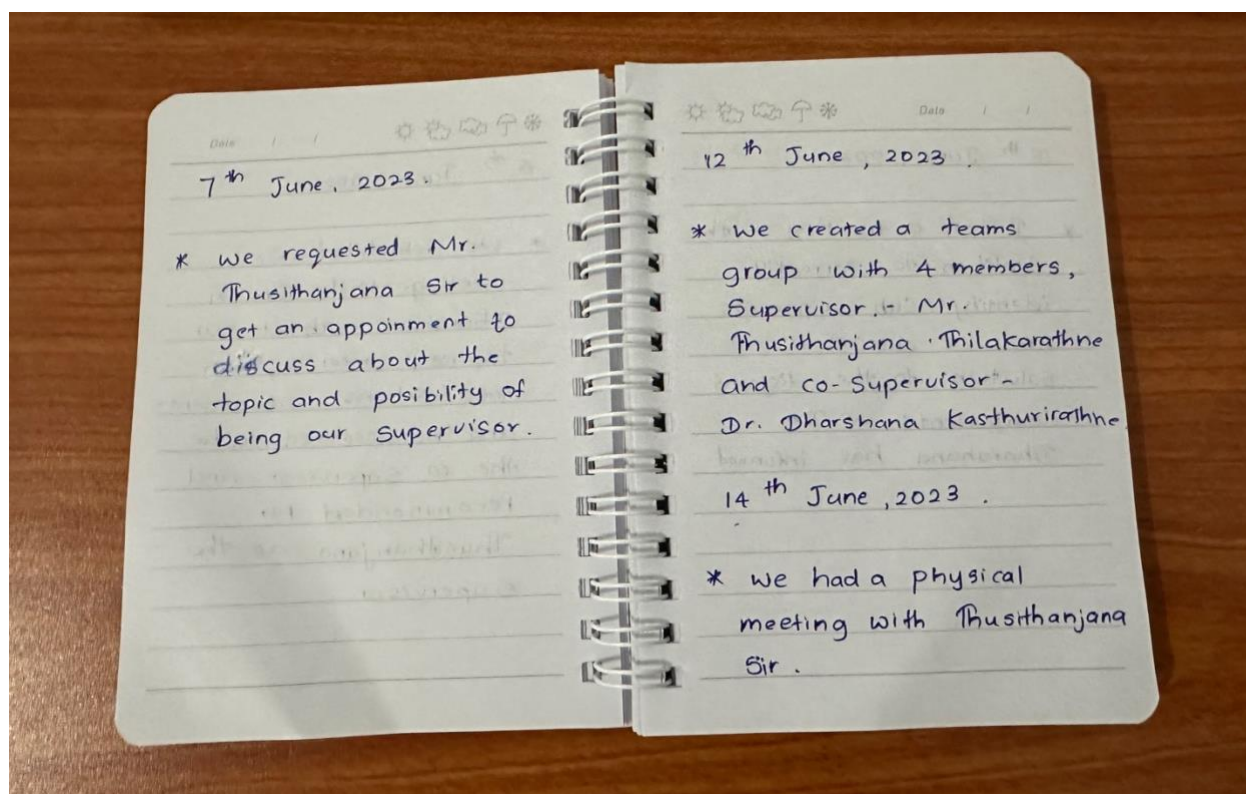 Date / /
7th June, 2023.
* we requested Mr.
Thusithanjana Sir to
get an appoinment to
discuss about the
topic and posibility of
being our Supervisor.
Date / /
12th June, 2023.
* We created a teams
group with 4 members,
Supervisor.- Mr.
Thusithanjana Thilakarathne
and co-Supervisor-
Dr. Dharshana Kasthurirathne
14th June, 2023.
* we had a physical
meeting with Thusithanjana
Sir.